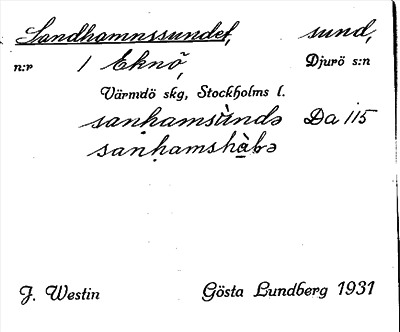 Sandhamnssundet, sund,
n:r 1 Eknö, Djurö s:n
Värmdö skg, Stockholms l.
sanḥamsùndə Da 115
sanḥamshà̱bə
J. Westin Gösta Lundberg 1931